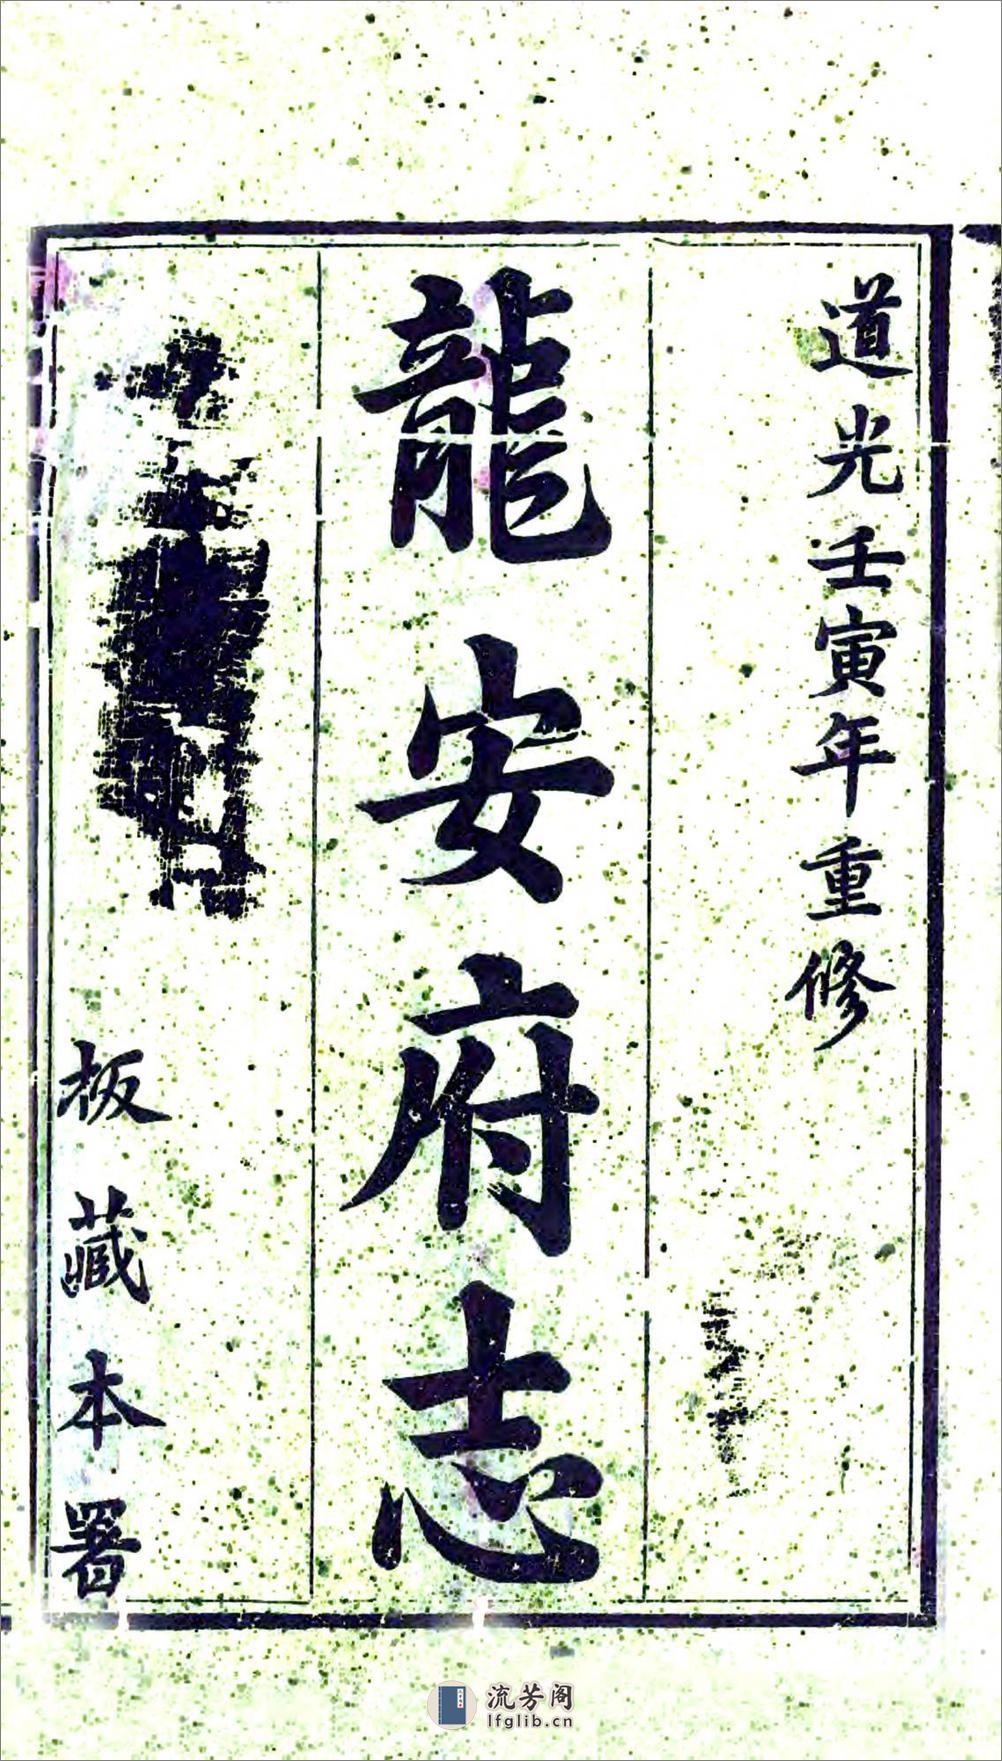 道光壬寅年重修
龍安府志
板藏本署
流芳阁
lfglib.cn